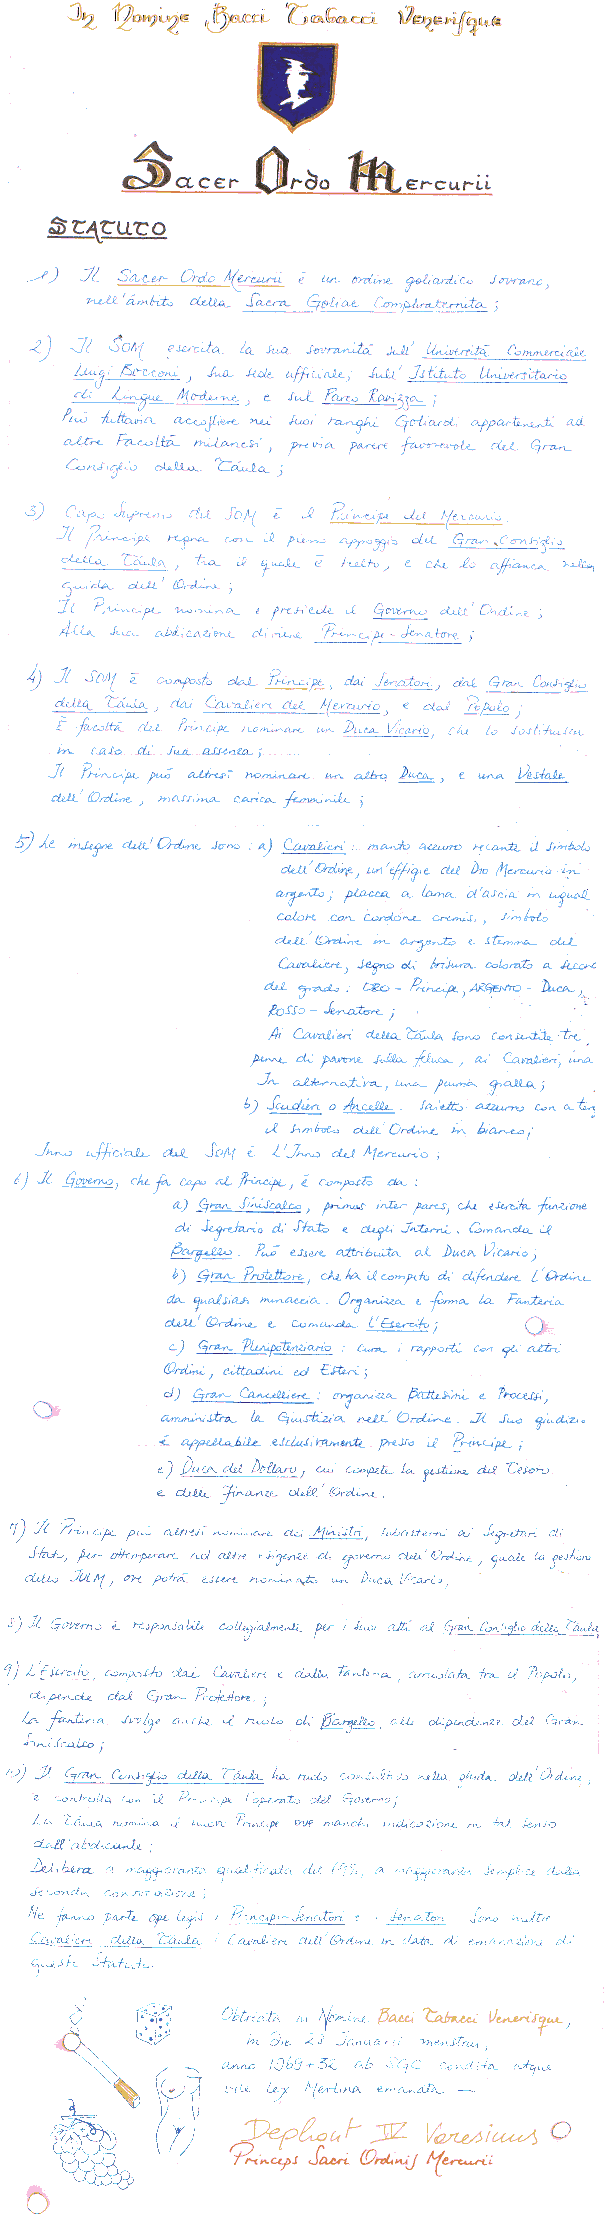 In Nomine Bacci Tabacci Venerisque
Sacer Ordo Mercurii
STATUTO
1) Il Sacer Ordo Mercurii è un ordine goliardico sovrano,
nell'ámbito della Sacra Goliae Complraternita;
2) Il SOM esercita la sua sovranitá sull' Universitá Commerciale
Luigi Bocconi, sua sede ufficiale, sull' Istituto Universitario
di Lingue Moderne, e sul Parco Ravizza;
Può tuttavia accogliere nei suoi ranghi Goliardi appartenenti ad
altre Facoltá milanesi, previa parere favorevole del Gran
Consiglio della Táula;
3) Capo Supremo del SOM è il Principe del Mercurio.
Il Principe regna con il pieno appoggio del Gran Consiglio
della Táula, tra il quale è scelto, e che lo affianca nella
guida dell' Ordine;
Il Principe nomina e presiede il Governo dell'Ordine;
Alla sua abdicazione diviene Principe-Senatore;
4) Il SOM è composto dal Principe, dai Senatori, dal Gran Consiglio
della Táula, dai Cavalieri del Mercurio, e dal Popolo;
È facoltá del Principe nominare un Duca Vicario, che lo sostituisca
in caso di sua assenza;
Il Principe può altresì nominare un altro Duca, e una Vestale
dell'Ordine, massima carica femminile;
5) Le insegne dell'Ordine sono: a) Cavalieri: manto azzurro recante il simbolo
dell'Ordine, un'effigie del Dio Mercurio in
argento; placca a lama d'ascia in ugual
colore con cordone cremisi, simbolo
dell'Ordine in argento e stemma del
Cavaliere, segno di brisura colorato a second
del grado: ORO - Principe, ARGENTO - Duca,
ROSSO - Senatore;
Ai Cavalieri della Táula sono consentite tre
piume di pavone sulla feluca, ai Cavalieri, una
In alternativa, una piuma gialla;
b) Scudieri o Ancelle: saietto azzurro con a terg
il simbolo dell'Ordine in bianco;
Inno ufficiale del SOM è L'Inno del Mercurio;
6) Il Governo, che fa capo al Principe, è composto da:
a) Gran Siniscalco, primus inter pares, che esercita funzione
di Segretario di Stato e degli Interni. Comanda il
Bargello. Può essere attribuita al Duca Vicario;
b) Gran Protettore, che ha il compito di difendere l'Ordine
da qualsiasi minaccia. Organizza e forma la Fanteria
dell'Ordine e comanda l'Esercito;
c) Gran Plenipotenziario: cura i rapporti con gli altri
Ordini, cittadini ed Esteri;
d) Gran Cancelliere: organizza Battesimi e Processi,
amministra la Giustizia nell'Ordine. Il suo giudizio
è appellabile esclusivamente presso il Principe;
e) Duca del Dollaro, cui compete la gestione del Tesoro
e delle Finanze dell'Ordine.
7) Il Principe può altresì nominare dei Ministri, subalterni ai Segretari di
Stato, per ottemperare ad altre esigenze di governo dell'Ordine, quale la gestione
dello IULM, ove potrá essere nominato un Duca Vicario;
8) Il Governo è responsabile collegialmente per i suoi atti al Gran Consiglio della Táula
9) L'Esercito, composto dai Cavalieri e dalla Fanteria, arruolata tra il Popolo,
dipende dal Gran Protettore;
La fanteria svolge anche il ruolo di Bargello, alle dipendenze del Gran
Siniscalco;
10) Il Gran Consiglio della Táula ha ruolo consultivo nella guida dell'Ordine,
e controlla con il Principe l'operato del Governo;
La Táula nomina il nuovo Principe ove manchi indicazione in tal senso
dall'abdicante;
Delibera a maggioranza qualificata del a maggioranza semplice dalla
seconda convocazione;
Ne fanno parte ope legis i Principi-Senatori e i Senatori. Sono inoltre
Cavalieri della Táula i Cavalieri dell'Ordine in data di emanazione di
questo Statuto.
in Nomine Bacci Tabacci Venerisque,
in Die 23 Januarii menstrui,
anno 1969+32 ab SGC condita atque
Lex Merlina emanata —
Dephout IV Varesinus
Princeps Sacri Ordinis Mercurii